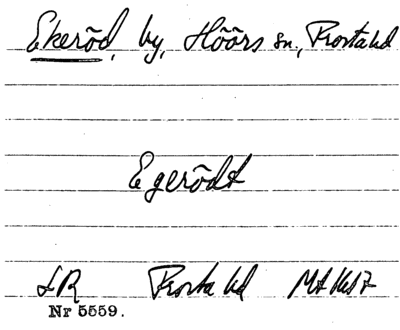 Ekerõd, by, Hõõrs sn, Frosta hd
Egerõdt
LR Frosta hd Mt 1617
Nr 5559.